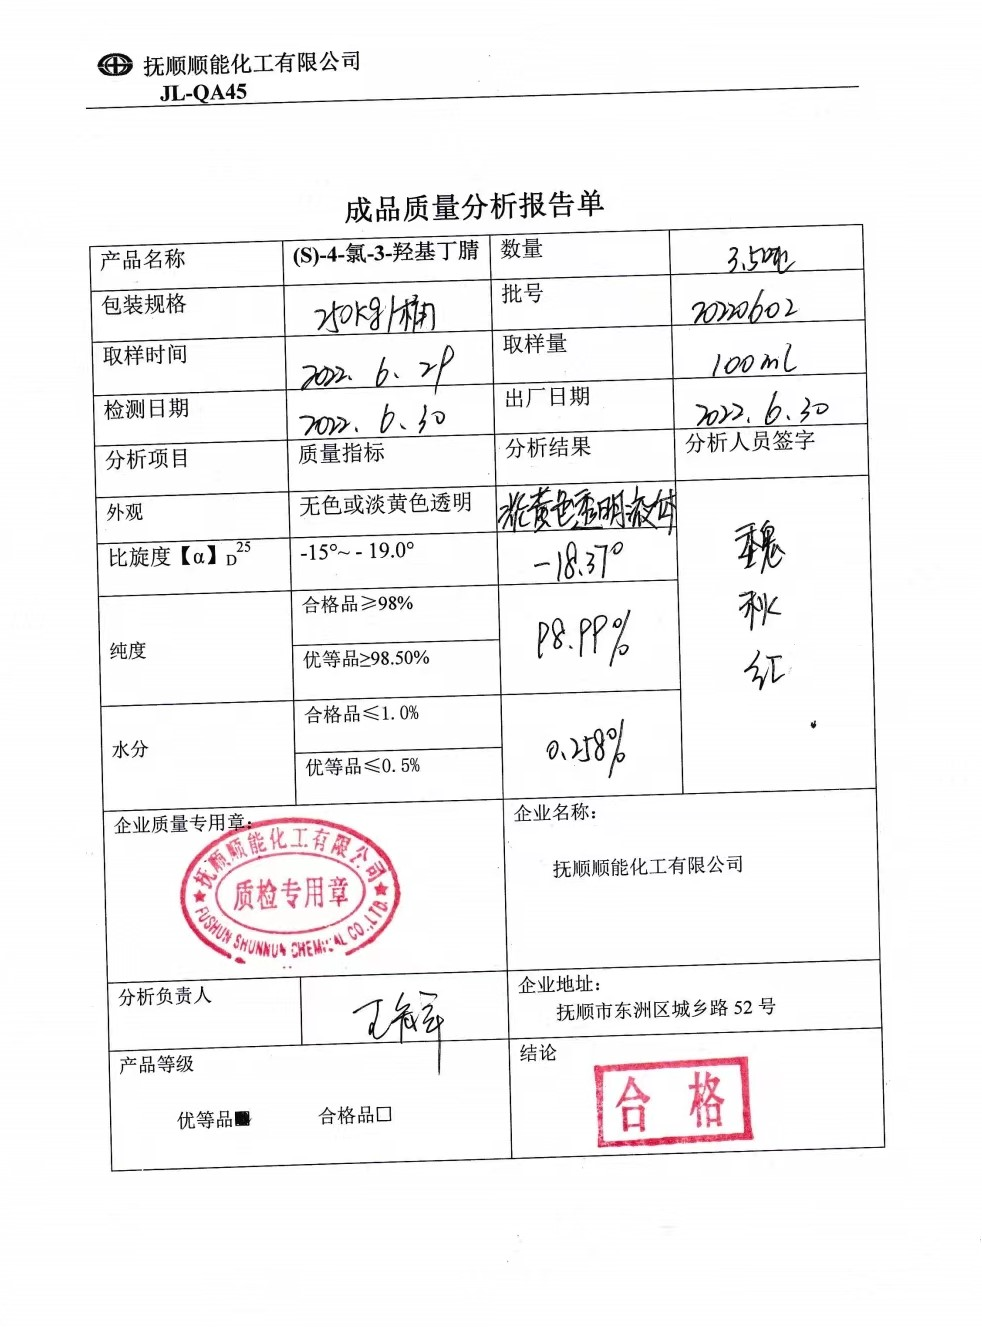 抚顺顺能化工有限公司
JL-QA45
成品质量分析报告单
产品名称 (S)-4-氯-3-羟基丁腈 数量 3.5吨
包装规格 250kg/桶 批号 20220602
取样时间 2022. 6. 29 取样量 100ml
检测日期 2022. 6. 30 出厂日期 2022. 6. 30
分析项目 质量指标 分析结果 分析人员签字
外观 无色或淡黄色透明 淡黄色透明液体
比旋度【α】D25 -15°~ - 19.0° -18.37°
魏秋红
纯度 合格品≥98% 98.99%
优等品≥98.50%
水分 合格品≤1.0% 0.258%
优等品≤0.5%
企业质量专用章: 企业名称:
抚顺顺能化工有限公司
抚顺顺能化工有限公司
质检专用章
FUSHUN SHUNNUN CHEMICAL CO.,LTD.
分析负责人 企业地址:
抚顺市东洲区城乡路 52 号
产品等级 结论
优等品■ 合格品□
合 格